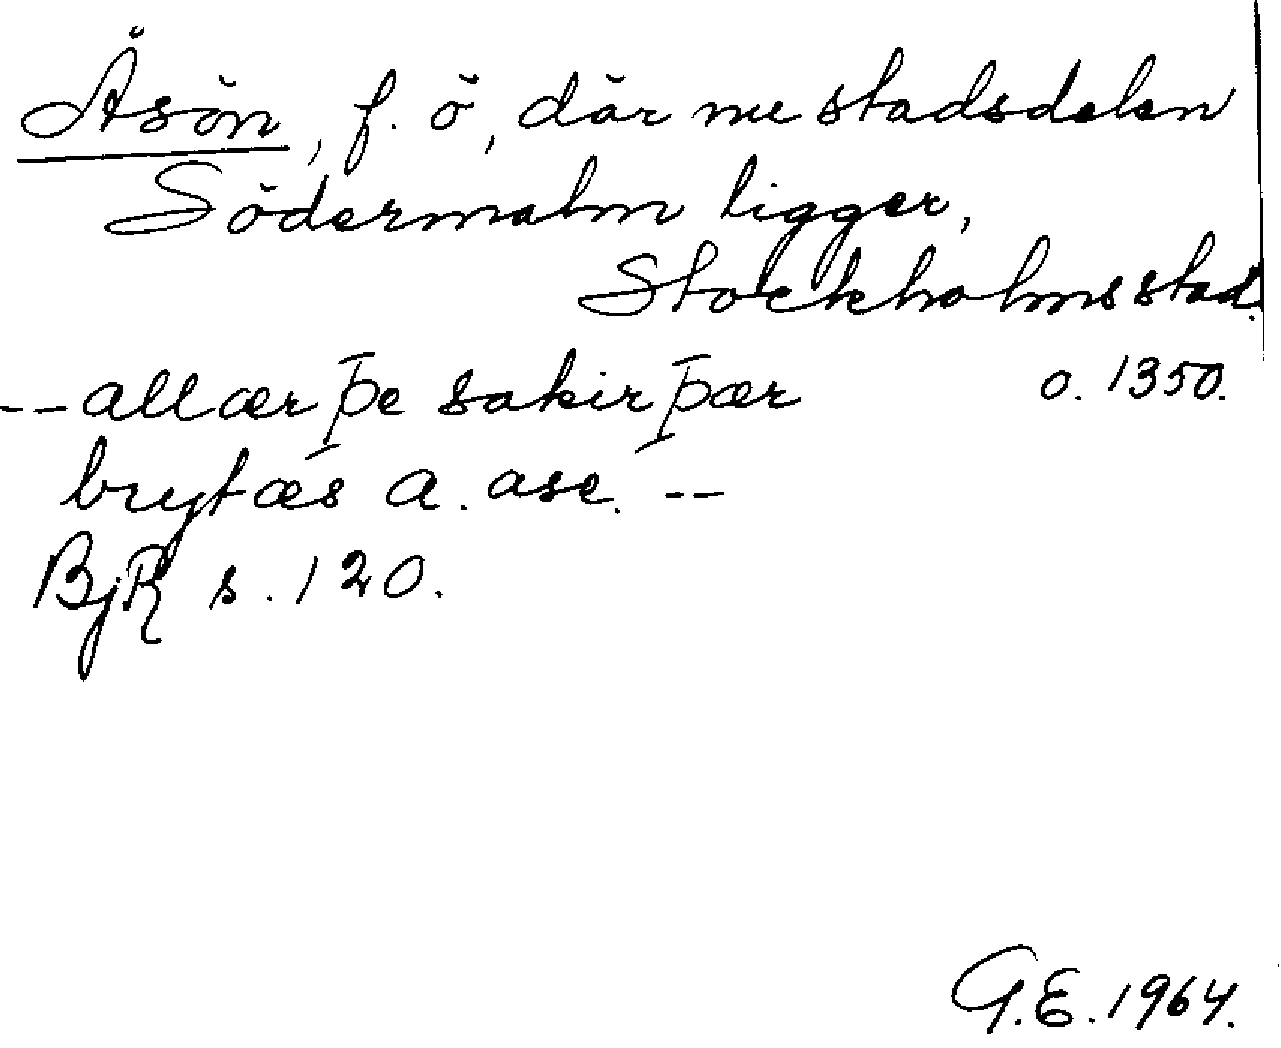 Åsön, f. ö, där nu stadsdelen
Södermalm ligger,
Stockholms stad.
-- allær þe sakir þær o. 1350.
brytæs a. ase. --
BjR s. 120.
G.E. 1964.